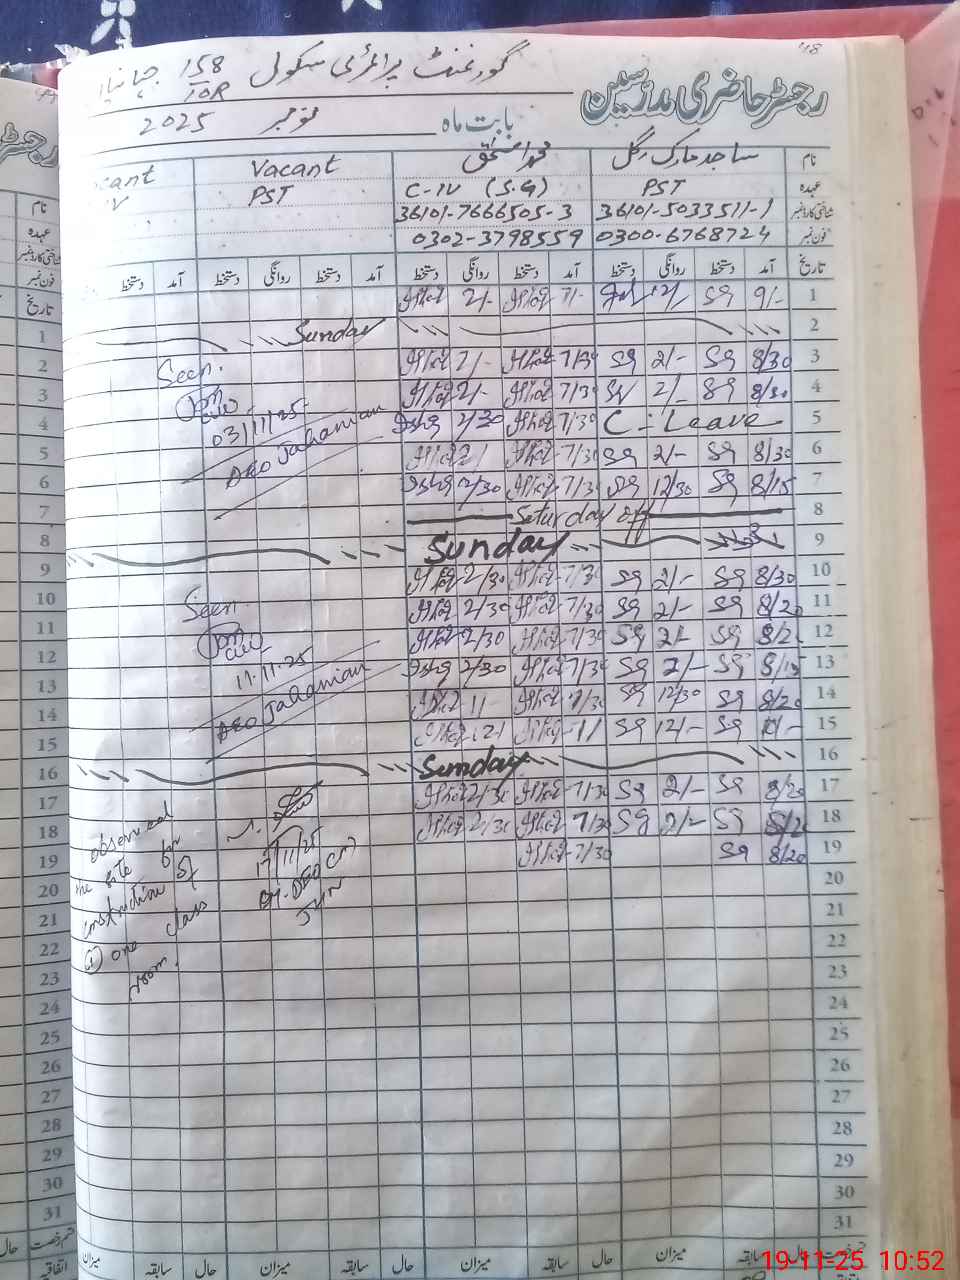 48
گورنمنٹ پرائمری سکول 158/10R جہانیاں
رجسٹر حاضری مدرسین
بابت ماہ نومبر 2025
نام ساجد مبارک گل محمد اسحٰق Vacant cant
عہدہ PST C-IV (S.G) PST V
شناختی کارڈ نمبر 36101-5033511-1 36101-7666505-3
فون نمبر 0300-6768724 0302-3798559
تاریخ آمد دستخط روانگی دستخط آمد دستخط روانگی دستخط آمد دستخط روانگی دستخط آمد دستخط
1 9/- SG 12/- 7/- 2/-
2 Sunday
3 8/30 SG 2/- SG 7/30 2/-
4 8/30 SG 2/- 7/30 2/-
5 C-Leave 7/30 2/30
6 8/30 SG 2/- SG 7/30 2/
7 8/15 SG 12/30 SG 7/30 2/30
8 Saturday off
9 Sunday
10 8/30 SG 2/- SG 7/30 2/30
11 8/20 SG 2/- SG 7/30 2/30
12 SG 2/- SG 7/30 2/30
13 8/15 SG 2/- SG 7/30 2/30
14 8/20 SG 12/30 SG 7/30
15 SG 12/- SG
16 Sunday
17 8/20 SG 2/- SG 7/30 2/30
18 8/20 SG 2/- SG 7/30 2/30
19 8/20 SG 7/30
20
21
22
23
24
25
26
27
28
29
30
31
Seen.
03/11/25
AEO Jahanian
Seen
11.11.25
AEO Jahanian
observed
the site for
construction of
① one class
room.
17/11/25
DY. DEO (M)
JHN
میزان حال سابقہ میزان حال سابقہ میزان حال سابقہ
رجسٹر
نام
عہدہ
شناختی کارڈ نمبر
فون نمبر
تاریخ
1
2
3
4
5
6
7
8
9
10
11
12
13
14
15
16
17
18
19
20
21
22
23
24
25
26
27
28
29
30
31
حال
اتفاقیہ
19-11-25 10:52